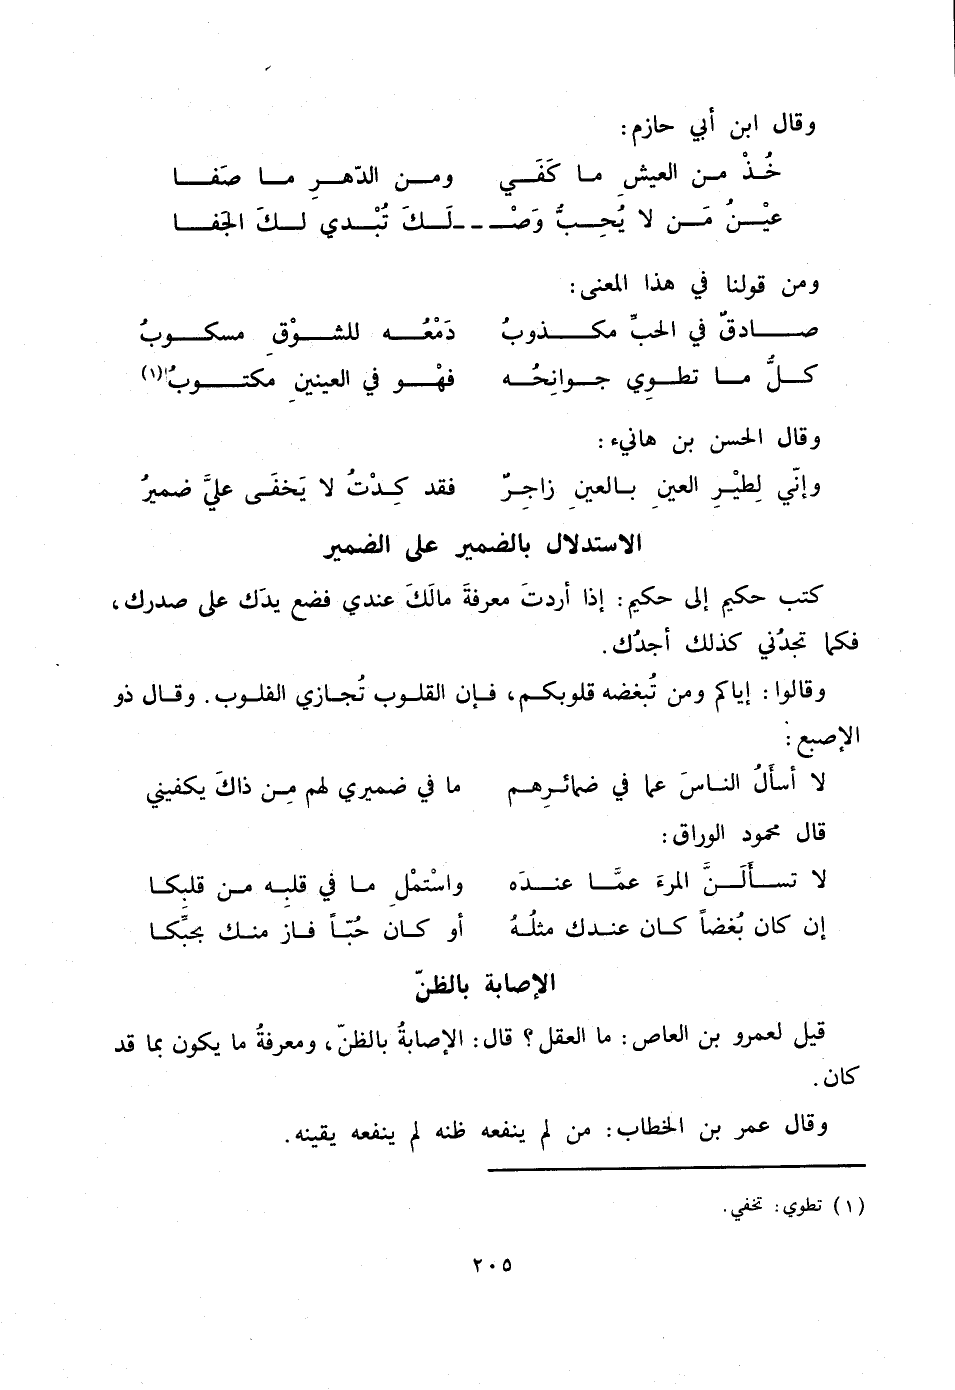 وقال ابن أبي حازم:
خُذْ من العيشِ ما كَفَي ومن الدّهرِ ما صَفا
عيْنُ مَن لا يُحِبُّ وَصْـ ـلَكَ تُبْدي لكَ الجَفا
ومن قولنا في هذا المعنى:
صادقٌ في الحبِّ مكذوبُ دَمْعُه للشوْقِ مسكوبُ
كلُّ ما تطوِي جوانِحُه فهْو في العينينِ مكتوبُ(١)
وقال الحسن بن هانيء:
وإنّي لِطيْرِ العينِ بالعينِ زاجِرٌ فقد كِدْتُ لا يَخفَى عليَّ ضميرُ
الاستدلال بالضمير على الضمير
كتب حكيم إلى حكيم: إذا أردتَ معرفةَ مالَكَ عندي فضع يدَك على صدرك،
فكما تجدُني كذلك أجدُك.
وقالوا: إياكم ومن تُبغضه قلوبكم، فإن القلوب تُجازي القلوب. وقال ذو
الإصبع:
لا أسألُ الناسَ عما في ضمائرِهم ما في ضميري لهم مِن ذاكَ يكفيني
قال محمود الوراق:
لا تسألَنَّ المرءَ عمَّا عنده واسْتَمْلِ ما في قلبِه من قلبِكا
إن كان بُغضاً كان عندك مثلُهُ أو كان حُبّاً فاز منك بحبِّكا
الإصابة بالظنّ
قيل لعمرو بن العاص: ما العقل؟ قال: الإصابةُ بالظنّ، ومعرفةُ ما يكون بما قد
كان.
وقال عمر بن الخطاب: من لم ينفعه ظنه لم ينفعه يقينه.
(١) تطوي: تخفي.
٢٠٥